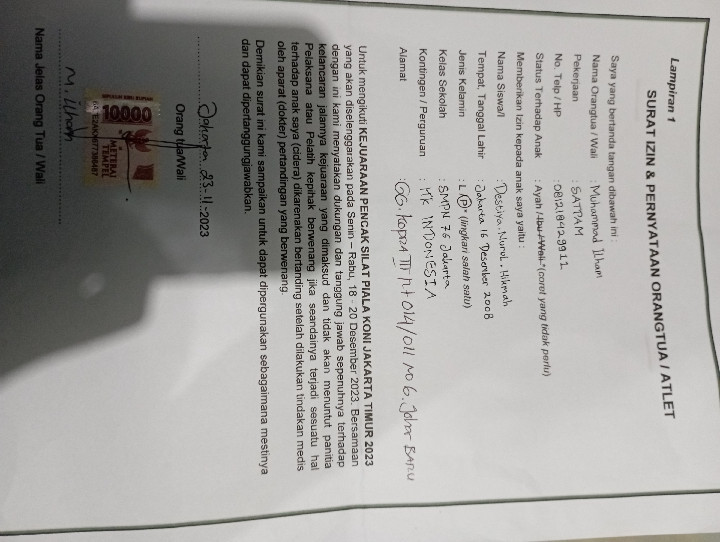 Lampiran 1
SURAT IZIN & PERNYATAAN ORANGTUA / ATLET
Saya yang bertanda tangan dibawah ini :
Nama Orangtua / Wali : Muhammad Ilham
Pekerjaan : SATPAM
No. Telp / HP
Status Terhadap Anak : Ayah / Ibu / Wali *(corot yang tidak perlu)
Memberikan Izin kepada anak saya yaitu :
Nama Siswa/I : Destiya. Nurul. Hikmah
Tempat, Tanggal Lahir : Jakarta 16 Desember 2008
Jenis Kelamin : L / P * (lingkari salah satu)
Kelas Sekolah : SMPN 76 Jakarta
Kontingen / Perguruan : MK INDONESIA
Alamat : GG. KOPRA III rt 014/011 NO 6. Johar BARU
Untuk mengikuti KEJUARAAN PENCAK SILAT PIALA KONI JAKARTA TIMUR 2023
yang akan diselenggarakan pada Senin – Rabu, 18 - 20 Desember 2023. Bersamaan
dengan ini kami menyatakan dukungan dan tanggung jawab sepenuhnya terhadap
kelancaran jalannya kejuaraan yang dimaksud dan tidak akan menuntut panitia
Pelaksana atau Pelatih kepihak berwenang jika seandainya terjadi sesuatu hal
terhadap anak saya (cidera) dikarenakan bertanding setelah dilakukan tindakan medis
oleh aparat (dokter) pertandingan yang berwenang.
Demikian surat ini kami sampaikan untuk dapat dipergunakan sebagaimana mestinya
dan dapat dipertanggungjawabkan.
Jakarta 23-11-2023
Orang tua/Wali
10000
METERAI
TEMPEL
M. ilham
Nama Jelas Orang Tua / Wali